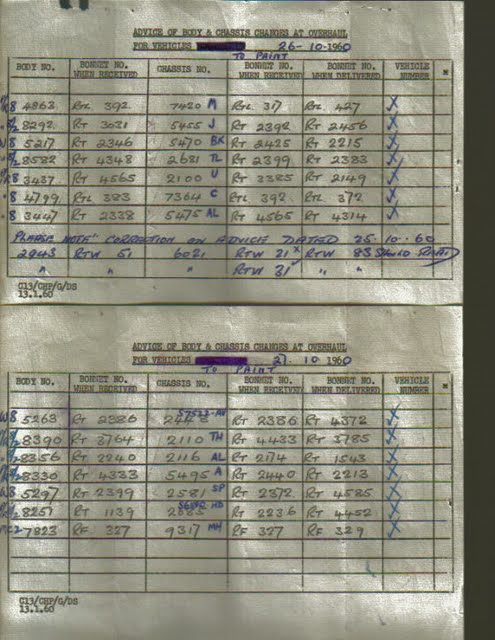 ADVICE OF BODY & CHASSIS CHANGES AT OVERHAUL
FOR VEHICLES 26-10-1960
TO PAINT
BODY NO. BONNET NO. WHEN RECEIVED CHASSIS NO. BONNET NO. WHEN OVERHAULED BONNET NO. WHEN DELIVERED VEHICLE NUMBER
8 4863 RTL 392 7420 M RTL 317 RTL 427 X
8292 RT 3031 5455 J RT 2392 RT 2456 X
W8 5217 RT 2346 5470 BK RT 2425 RT 2215 X
8582 RT 4348 2681 TL RT 2399 RT 2383 X
8 3437 RT 4565 2100 U RT 3385 RT 2149 X
8 4799 RTL 383 7364 C RTL 392 RTL 372 X
8 3447 RT 2338 5475 AL RT 4565 RT 4314 X
PLEASE NOTE" CORRECTION ON ADVICE DATED 25.10.60
2943 RTW 51 6021 RTW 21 X RTW 83 SHOULD READ
" " RTW 31 " "
C13/CHP/G/DS
13.1.60
ADVICE OF BODY & CHASSIS CHANGES AT OVERHAUL
FOR VEHICLES 27.10.1960
TO PAINT
BODY NO. BONNET NO. WHEN RECEIVED CHASSIS NO. BONNET NO. WHEN OVERHAULED BONNET NO. WHEN DELIVERED VEHICLE NUMBER
W8 5263 RT 2386 RT 2386 RT 4372 X
8390 RT 3764 2110 TH RT 4433 RT 3785 X
8356 RT 2240 2116 AL RT 2174 RT 1543 X
8330 RT 4333 5495 A RT 2440 RT 2213 X
W8 5297 RT 2399 2581 SP RT 2372 RT 4585 X
8251 RT 1139 HD RT 2236 RT 4452 X
7823 RF 327 9317 MH RF 327 RF 329 X
C13/CHP/G/DS
13.1.60